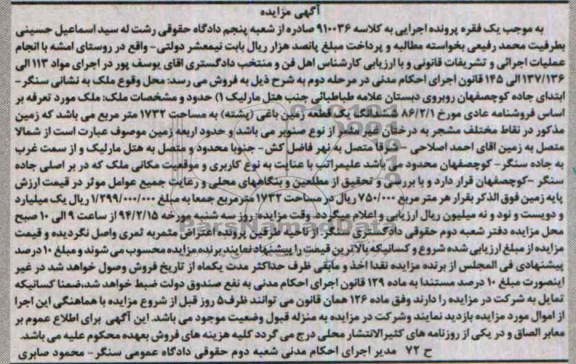 آگهی مزایده
به موجب یک فقره پرونده اجرایی به کلاسه ۹۱۰۰۳۶ صادره از شعبه پنجم دادگاه حقوقی رشت له سید اسماعیل حسینی
بطرفیت محمد رفیعی بخواسته مطالبه و پرداخت مبلغ پانصد هزار ریال بابت نیمعشر دولتی- واقع در روستای امشه با انجام
عملیات اجرائی و تشریفات قانونی و با ارزیابی کارشناس اهل فن و منتخب دادگستری اقای یوسف پور در اجرای مواد ۱۱۳ الی
۱۳۷/۱۳۶ الی ۱۴۵ قانون اجرای احکام مدنی در مرحله دوم به شرح ذیل به فروش می رسد: محل وقوع ملک به نشانی سنگر-
ابتدای جاده کوچصفهان روبروی دبستان علامه طباطبائی جنب هتل مارلیک ۱) حدود و مشخصات ملک: ملک مورد تعرفه بر
اساس فروشنامه عادی مورخ ۸۶/۲/۱ ششدانگ یک قطعه زمین باغی (پشته) به مساحت ۱۷۳۲ متر مربع می باشد که زمین
مذکور در نقاط مختلف مشجر به درختان غیر مثمر از نوع صنوبر می باشد، و حدود اربعه زمین موصوف عبارت است از شمالا
متصل به زمین اقای احمد اصلاحی - شرقا متصل به نهر فاضل کش- جنوبا محدود و متصل به هتل مارلیک و از سمت غرب
به جاده سنگر- کوچصفهان محدود می باشد علیمراتب با عنایت به نوع کاربری و موقعیت مکانی ملک که در بر اصلی جاده
سنگر -کوچصفهان قرار دارد و با بررسی و تحقیق از مطلعین و بنگاههای محلی و رعایت جمیع عوامل موثر در قیمت ارزش
پایه زمین فوق الذکر بقرار هر متر مربع ۷۵۰/۰۰۰ ریال در مساحت ۱۷۳۲ مترمربع جمعا به مبلغ ۱/۲۹۹/۰۰۰/۰۰۰ ریال یک میلیارد
و دویست و نود و نه میلیون ریال ارزیابی و اعلام میگردد. وقت مزایده: روز سه شنبه مورخه ۹۴/۲/۱۵ از ساعت ۹ الی ۱۰ صبح
محل مزایده دفتر شعبه دوم حقوقی دادگستری سنگر از ناحیه طرفین پرونده اعتراض مثمربه ثمری واصل نگردیده و قیمت
مزایده از مبلغ ارزیابی شده شروع و کسانیکه بالاترین قیمت را پیشنهاد نمایند برنده مزایده محسوب می شوند و مبلغ ۱۰ درصد
پیشنهادی فی المجلس از برنده مزایده نقدا اخذ و مابقی ظرف حداکثر مدت یکماه از تاریخ فروش وصول خواهد شد در غیر
اینصورت مبلغ ۱۰ درصد مستندا به ماده ۱۲۹ قانون اجرای احکام مدنی به نفع صندوق دولت ضبط خواهد شد،ضمنا کسانیکه
تمایل به شرکت در مزایده را دارند وفق ماده ۱۲۶ همان قانون می توانند ظرف۵ روز قبل از شروع مزایده با هماهنگی این اجرا
از اموال مورد مزایده بازدید نمایند وشرکت در مزایده به منزله قبول وضعیت موجود می باشد. این آگهی برای اطلاع عموم بر
معابر الصاق و در یکی از روزنامه های کثیرالانتشار محلی درج می گردد کلیه هزینه های فروش بعهده محکوم علیه می باشد.
ح ۷۲ مدیر اجرای احکام مدنی شعبه دوم حقوقی دادگاه عمومی سنگر- محمود صابری